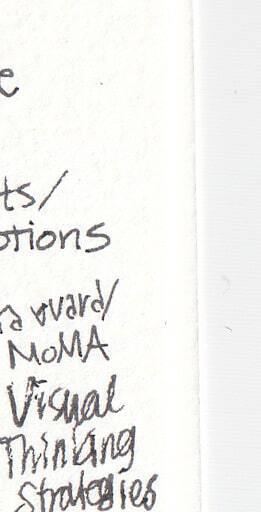 e
ts/
otions
MoMA
Visual
Thinking
Strategies